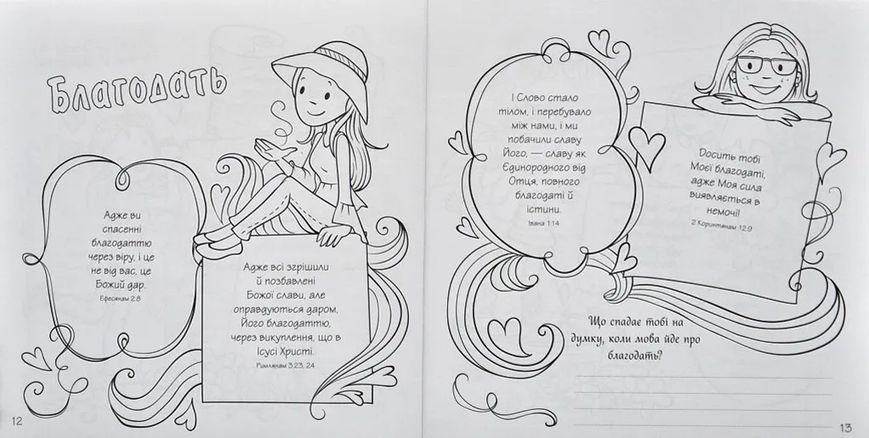 Благодать
Адже ви
спасенні
благодаттю
через віру, і це
не від вас, це
Божий дар.
Ефесянам 2:8
Адже всі згрішили
й позбавлені
Божої слави, але
оправдуються даром,
Його благодаттю,
через викуплення, що в
Ісусі Христі.
Римлянам 3:23, 24
12
І Слово стало
тілом, і перебувало
між нами, і ми
побачили славу
Його, — славу як
Єдинородного від
Отця, повного
благодаті й
істини.
Івана 1:14
Досить тобі
Моєї благодаті,
адже Моя сила
виявляється в
немочі!
2 Коринтянам 12:9
Що спадає тобі на
думку, коли мова йде про
благодать?
13